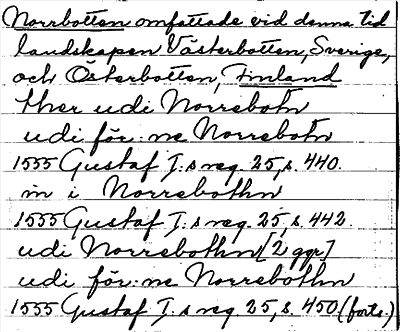 Norrbotten omfattade vid denna tid
landskapen Västerbotten, Sverige,
och Österbotten, Finland
ther udi Norrebotn
udi för:ne Norrebotn
1555 Gustaf I:s reg. 25, s. 440.
in i Norrebothn
1555 Gustaf I:s reg. 25, s. 442.
udi Norrebothn [2 ggr]
udi för:ne Norrebothn
1555 Gustaf I:s reg. 25, s. 450 (forts.)